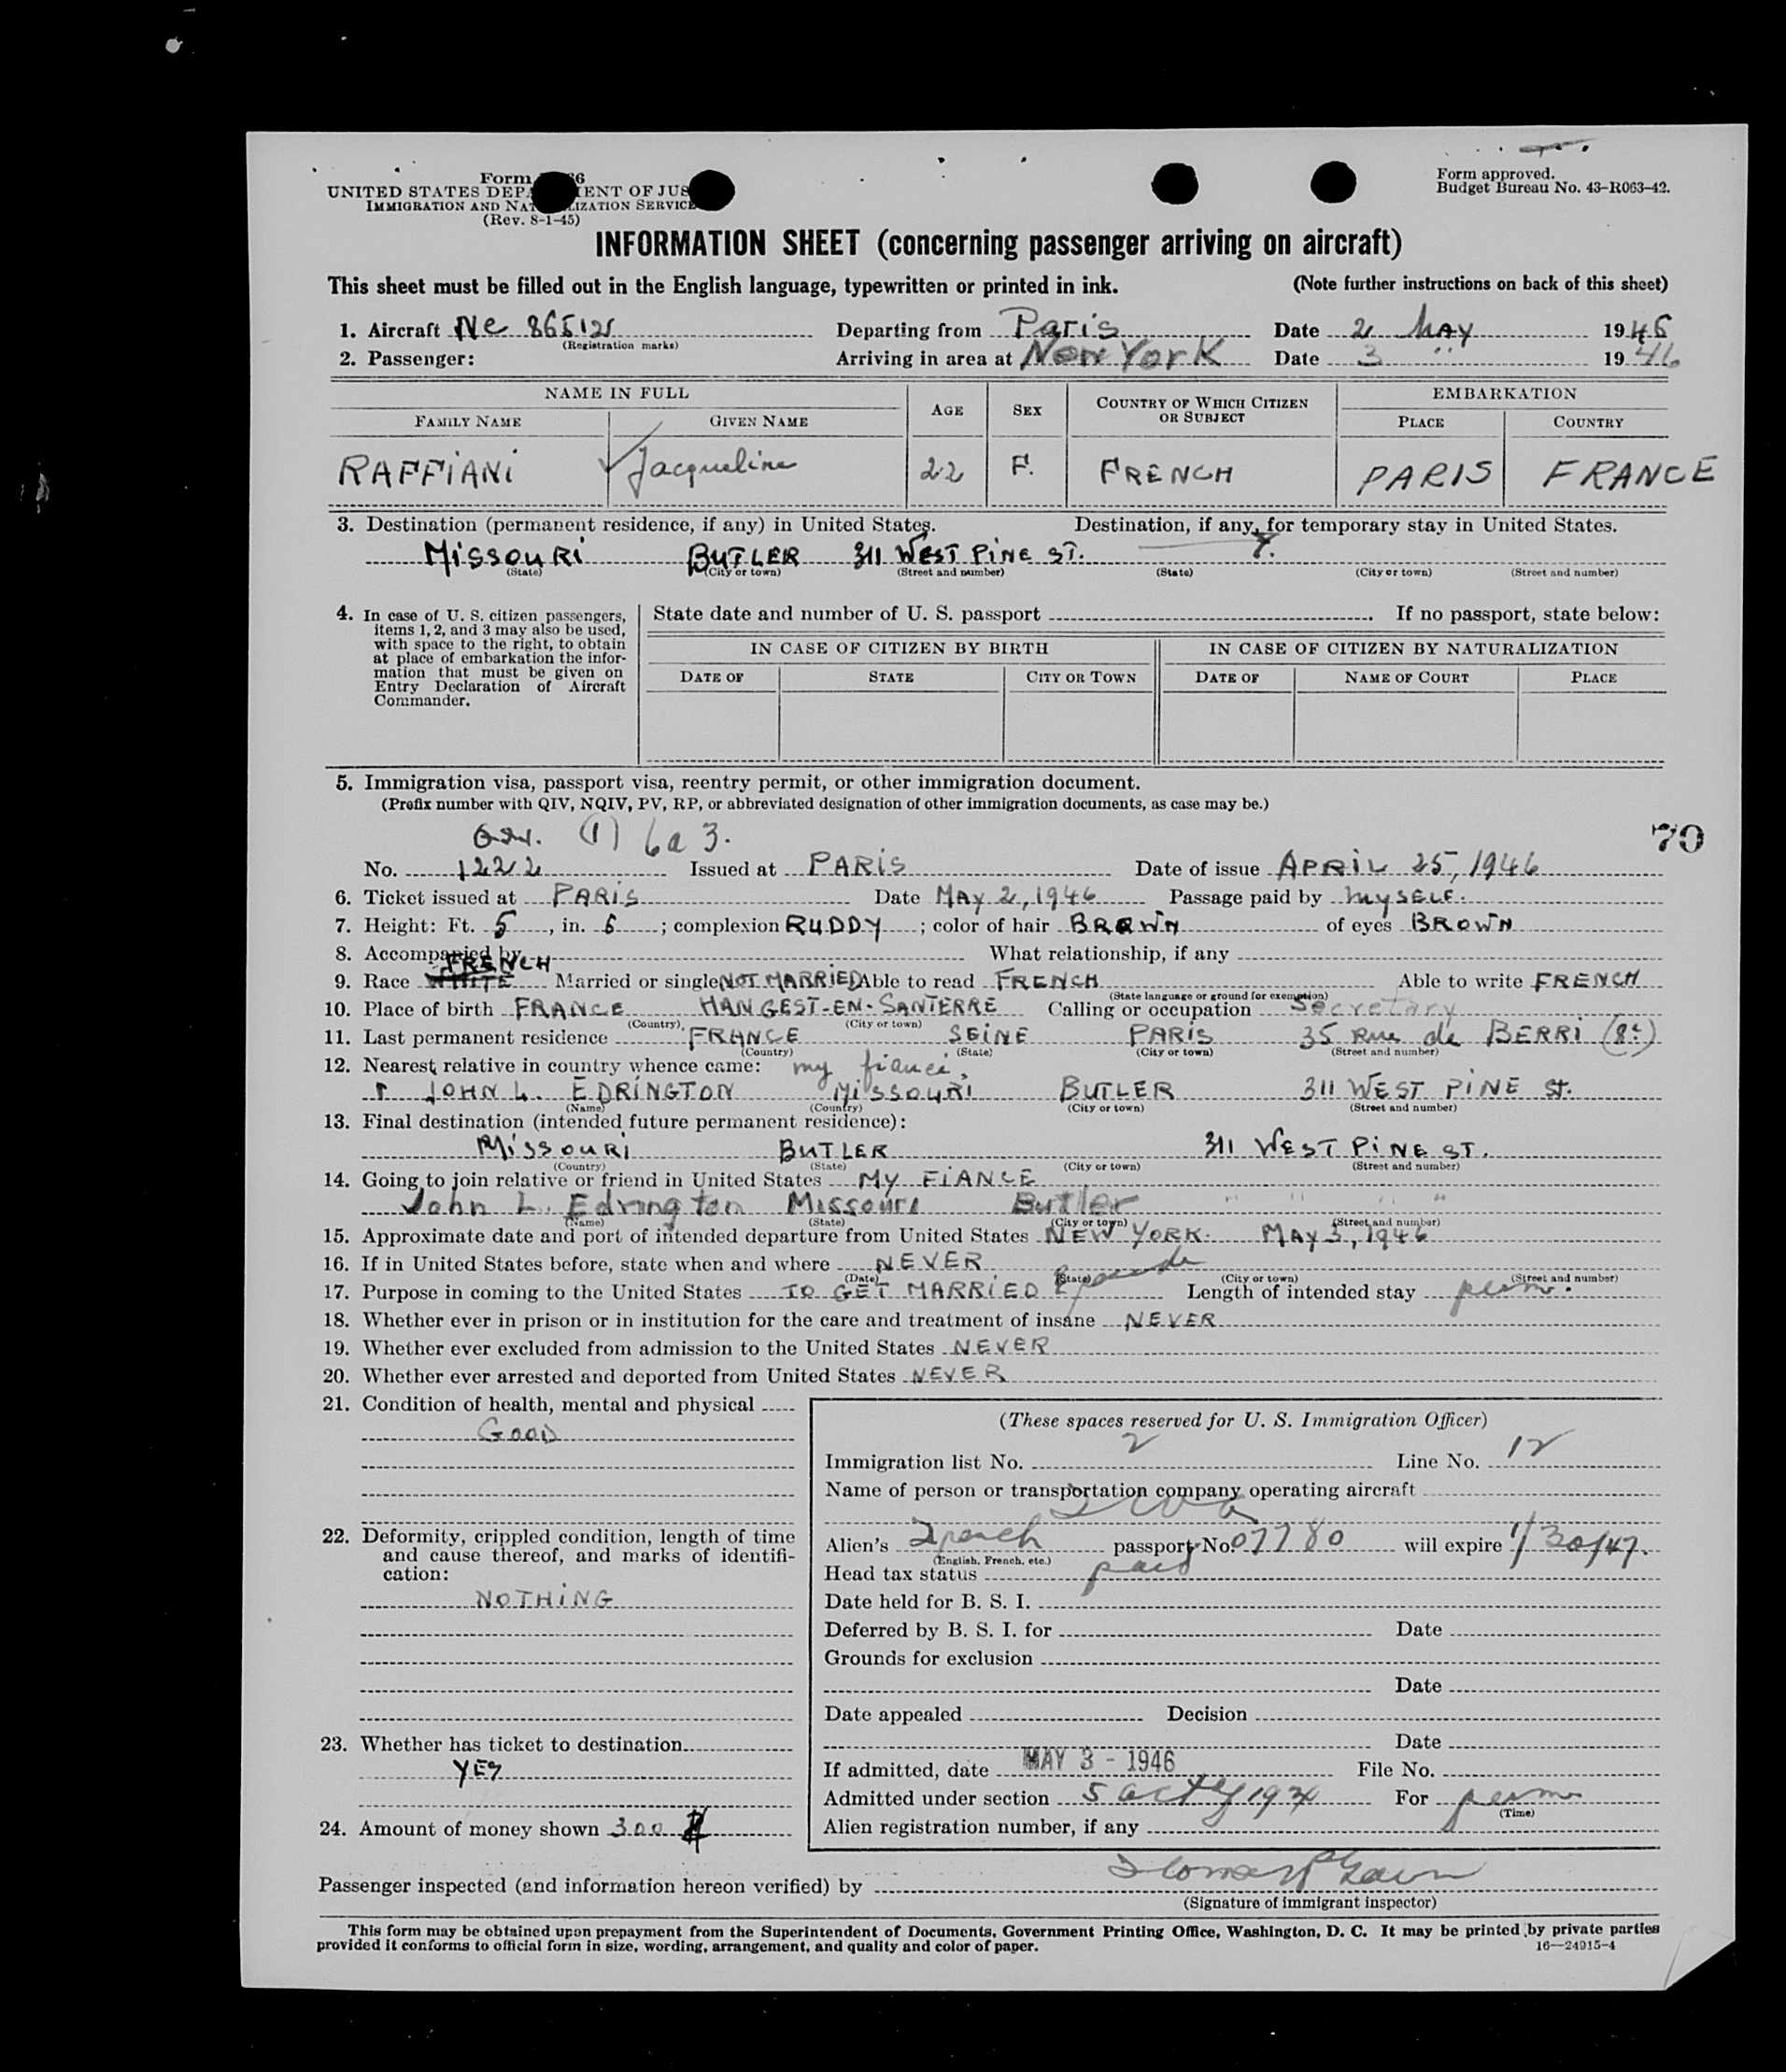 Form 6
UNITED STATES DEPA ENT OF JUS
IMMIGRATION AND NAT LIZATION SERVICE
(Rev. 8-1-45)
Form approved.
Budget Bureau No. 43-R063-42.
INFORMATION SHEET (concerning passenger arriving on aircraft)
This sheet must be filled out in the English language, typewritten or printed in ink. (Note further instructions on back of this sheet)
1. Aircraft Nc 86512 Departing from Paris Date 2 MAY 1946
(Registration marks)
2. Passenger: Arriving in area at New York Date 3 " 1946
NAME IN FULL AGE SEX COUNTRY OF WHICH CITIZEN OR SUBJECT EMBARKATION
FAMILY NAME GIVEN NAME PLACE COUNTRY
RAFFiANi Jacqueline 22 F. FRENCH PARIS FRANCE
3. Destination (permanent residence, if any) in United States. Destination, if any, for temporary stay in United States.
MiSSOURi BUTLER 311 WEST PiNE ST.
(State) (City or town) (Street and number) (State) (City or town) (Street and number)
4. In case of U. S. citizen passengers, items 1, 2, and 3 may also be used, with space to the right, to obtain at place of embarkation the information that must be given on Entry Declaration of Aircraft Commander.
State date and number of U. S. passport . If no passport, state below:
IN CASE OF CITIZEN BY BIRTH IN CASE OF CITIZEN BY NATURALIZATION
DATE OF STATE CITY OR TOWN DATE OF NAME OF COURT PLACE
5. Immigration visa, passport visa, reentry permit, or other immigration document.
(Prefix number with QIV, NQIV, PV, RP, or abbreviated designation of other immigration documents, as case may be.)
(1) 6a 3. 70
No. 1222 Issued at PARiS Date of issue APRiL 25, 1946
6. Ticket issued at PARiS Date MAY 2, 1946 Passage paid by MYSELF.
7. Height: Ft. 5, in. 6; complexion RUDDY; color of hair BROWN of eyes BROWN
8. Accompanied by What relationship, if any
FRENCH
9. Race WHITE Married or single NOT MARRiED Able to read FRENCH Able to write FRENCH
(State language or ground for exemption)
10. Place of birth FRANCE HANGEST-EN-SANTERRE Calling or occupation Secretary
(Country) (City or town)
11. Last permanent residence FRANCE SEiNE PARiS 35 Rue de BERRi (8e)
(Country) (State) (City or town) (Street and number)
12. Nearest relative in country whence came: my fiancé,
JOHN L. EDRiNGTON MiSSOURi BUTLER 311 WEST PiNE St.
(Name) (Country) (City or town) (Street and number)
13. Final destination (intended future permanent residence):
MiSSOURi BUTLER 311 WEST PiNE ST.
(Country) (State) (City or town) (Street and number)
14. Going to join relative or friend in United States MY FiANCE
John L. Edrington Missouri Butler " " " "
(Name) (State) (City or town) (Street and number)
15. Approximate date and port of intended departure from United States NEW YORK. MAY 3, 1946
16. If in United States before, state when and where NEVER
(Date) (State) (City or town) (Street and number)
17. Purpose in coming to the United States TO GET MARRiED & reside Length of intended stay perm.
18. Whether ever in prison or in institution for the care and treatment of insane NEVER
19. Whether ever excluded from admission to the United States NEVER
20. Whether ever arrested and deported from United States NEVER
21. Condition of health, mental and physical
GOOD
22. Deformity, crippled condition, length of time and cause thereof, and marks of identification:
NOTHiNG
23. Whether has ticket to destination
YES
24. Amount of money shown 300 $
(These spaces reserved for U. S. Immigration Officer)
Immigration list No. 2 Line No. 12
Name of person or transportation company operating aircraft
TWA
Alien's French passport No. 07780 will expire 1/30/47.
(English, French, etc.)
Head tax status paid
Date held for B. S. I.
Deferred by B. S. I. for Date
Grounds for exclusion
Date
Date appealed Decision
Date
If admitted, date MAY 3 - 1946 File No.
Admitted under section 5 act of 1924 For perm
(Time)
Alien registration number, if any
Passenger inspected (and information hereon verified) by
(Signature of immigrant inspector)
This form may be obtained upon prepayment from the Superintendent of Documents, Government Printing Office, Washington, D. C. It may be printed by private parties
provided it conforms to official form in size, wording, arrangement, and quality and color of paper. 16—24915-4